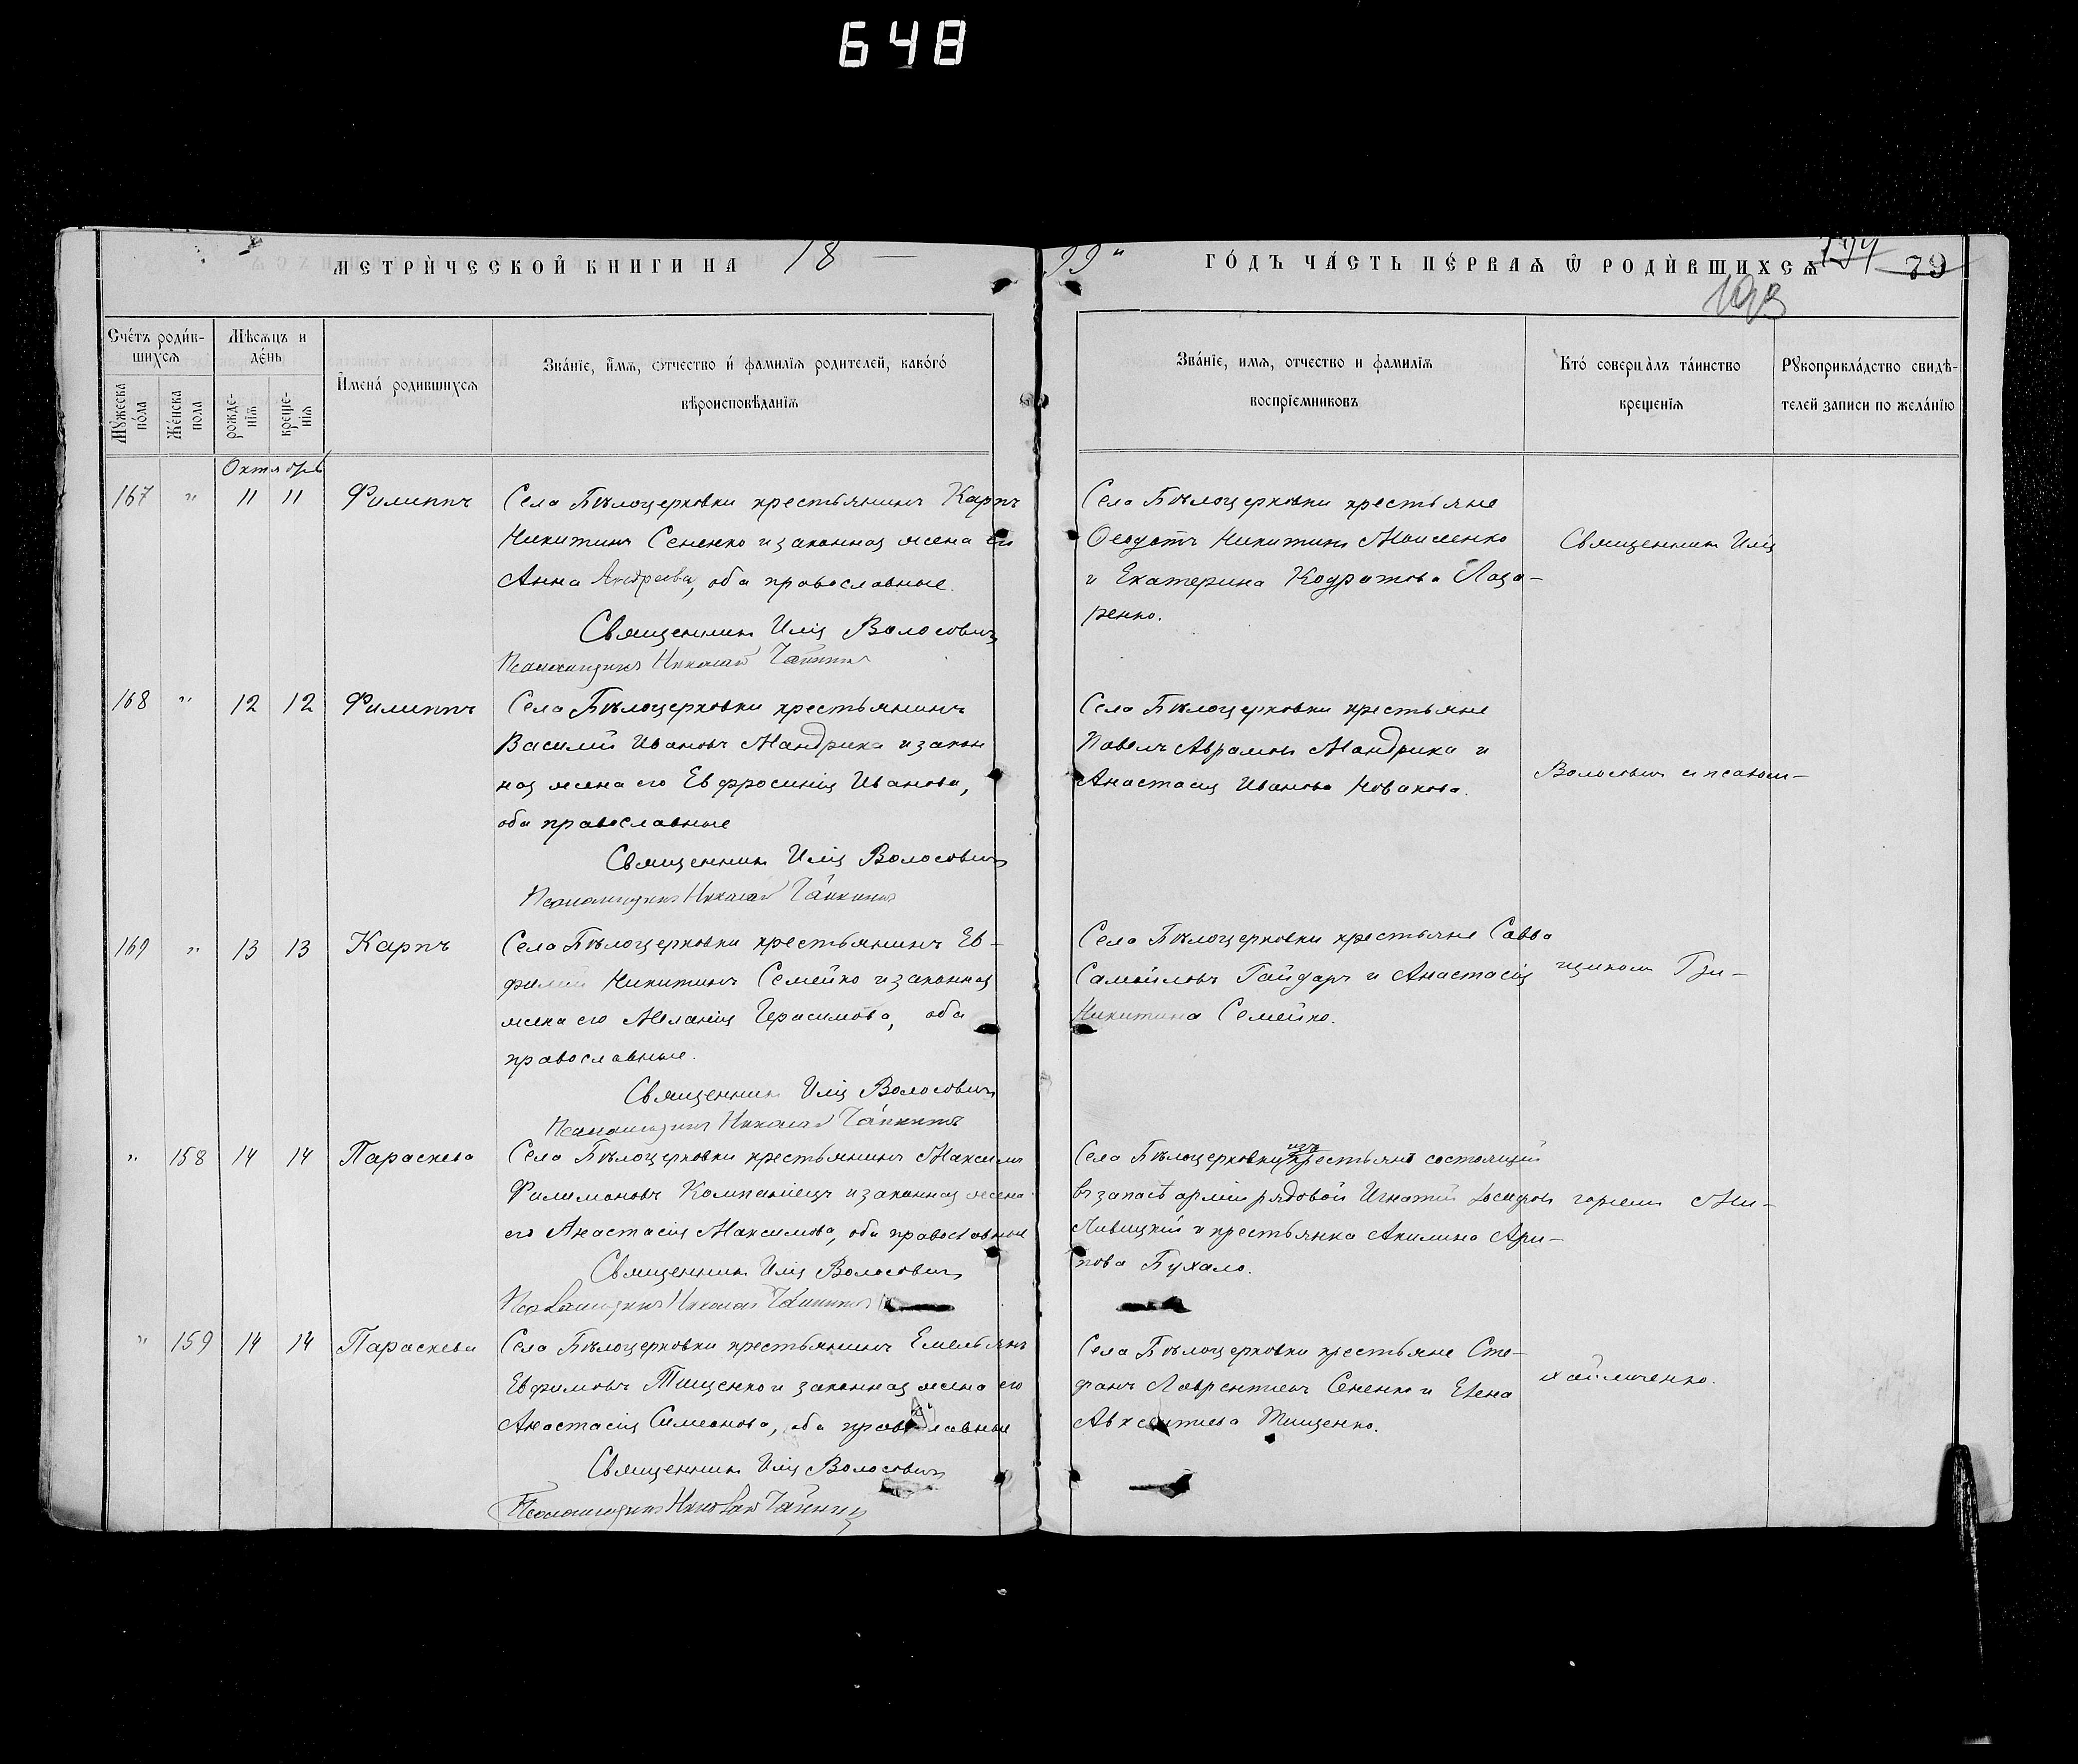 648
МЕТРИ́ЧЕСКОЙ КНИГИ НА 18
99 ГО́ДЪ ЧА́СТЬ ПЕ́РВАѦ Ѿ РОДИ́ВШИХСѦ
194 79
193
Сче́тъ роди́в-
шихсѧ
Мѣсѧцъ и
де́нь
Имена́ родившихсѧ
Зва́нїе, и҆́мѧ, ѻтчество и҆ фамилїѧ родителей, како́го
вѣроисповѣданїѧ
Мꙋжеска
по́ла
Же́нска
пола
рожде-
нїѧ
креще-
нїѧ
Зва́нїе, имѧ, отчество и фамилїѧ
воспрїемниковъ
Кто́ соверша̀лъ та́инство
крещенїѧ
Рꙋкоприкла́дство свидѣ-
телей записи по жела́нїю
Октябрь
167 " 11 11 Филиппъ
Села Бѣлоцерковки крестьянинъ Карпъ
Никитинъ Сененко и законная жена его
Анна Андреева, оба православные.
Священникъ Илія Волосовичъ
Псаломщикъ Николай
Села Бѣлоцерковки крестьяне
Ѳеодотъ Никитинъ Моисенко
и Екатерина Кодратова Лаза-
ренко.
Священникъ Илія
168 " 12 12 Филиппъ
Села Бѣлоцерковки крестьянинъ
Василій Ивановъ Мандрика и закон
ная жена его Евфросинія Иванова,
оба православные
Священникъ Илія Волосовичъ
Псаломщикъ Николай
Села Бѣлоцерковки крестьяне
Павелъ Аврамовъ Мандрика и
Анастасія Иванова Новакова.
Волосовичъ съ псалом-
169 " 13 13 Карпъ
Села Бѣлоцерковки крестьянинъ Ев-
фимій Никитинъ Семейко и законная
жена его Меланія Герасимова, оба
православные.
Священникъ Илія Волосовичъ
Псаломщикъ Николай
Села Бѣлоцерковки крестьяне Савва
Самойловъ Гайдаръ и Анастасія
Никитина Семейко.
щикомъ Гри-
" 158 14 14 Параскева
Села Бѣлоцерковки крестьянинъ Максимъ
Филимоновъ Компаніецъ и законная жена
его Анастасія Максимова, оба православные
Священникъ Илія Волосовичъ
Псаломщикъ Николай
Села Бѣлоцерковки изъ крестьянъ состоящій
въ запасѣ арміи рядовой Игнатій Іосифовъ
Ливицкій и крестьянка Акилина Ари-
пова Бухало.
горіемъ Ми-
" 159 14 14 Параскева
Села Бѣлоцерковки крестьянинъ Емельянъ
Евфимовъ Тищенко и законная жена его
Анастасія Симеонова, оба православные
Священникъ Илія Волосовичъ
Псаломщикъ Николай
Села Бѣлоцерковки крестьяне Сте-
фанъ Лаврентіевъ Сененко и Елена
Авксентіева Тищенко.
хайличенко.